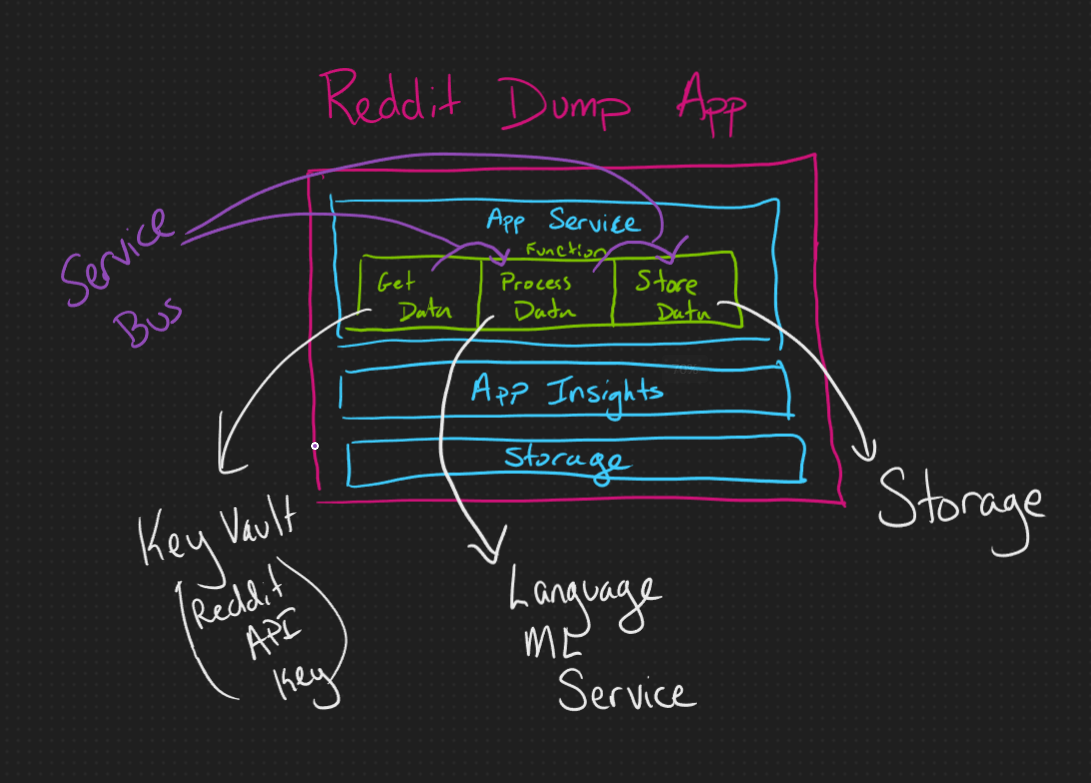 Reddit Dump App
Service
Bus
App Service
Function
Get
Data
Process
Data
Store
Data
App Insights
Storage
Key Vault
(Reddit
API
Key)
Language
ML
Service
Storage